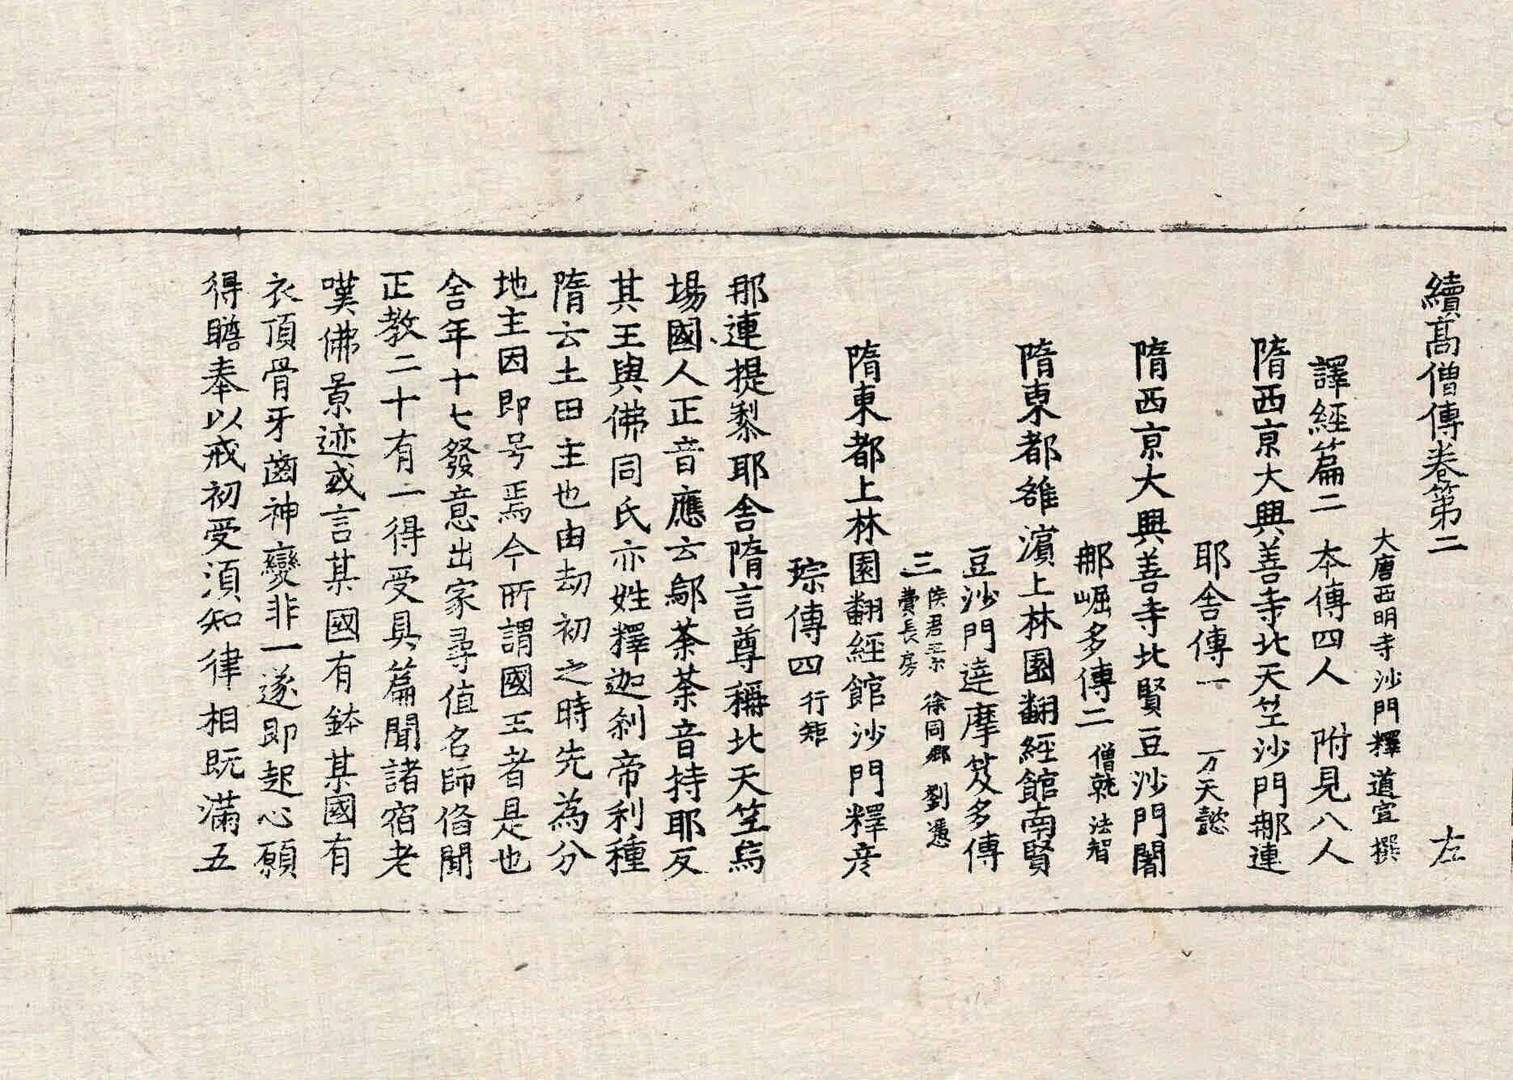 續髙僧傳卷第二 左
大唐西明寺沙門釋道宣撰
譯經篇二 本傳四人 附見八人
隋西亰大興善寺北天竺沙門那連
耶舍傳一 万天懿
隋西亰大興善寺北賢豆沙門闍
那崛多傳二 僧就 法智
隋東都雒濱上林園翻經館南賢
豆沙門達摩笈多傳
三 侯君素 徐同卿 劉憑 費長房
隋東都上林園翻經館沙門釋彦
琮傳四 行矩
那連提黎耶舍隋言尊稱北天竺烏
場國人正音應云鄔荼荼音持耶反
其王與佛同氏亦姓釋迦刹帝利種
隋云土田主也由劫初之時先為分
地主因即号焉今所謂國王者是也
舍年十七發意出家尋值名師俻聞
正教二十有一得受具篇聞諸宿老
嘆佛景迹或言某國有鉢某國有
衣頂骨牙齒神變非一遂即起心願
得瞻奉以戒初受須知律相既滿五